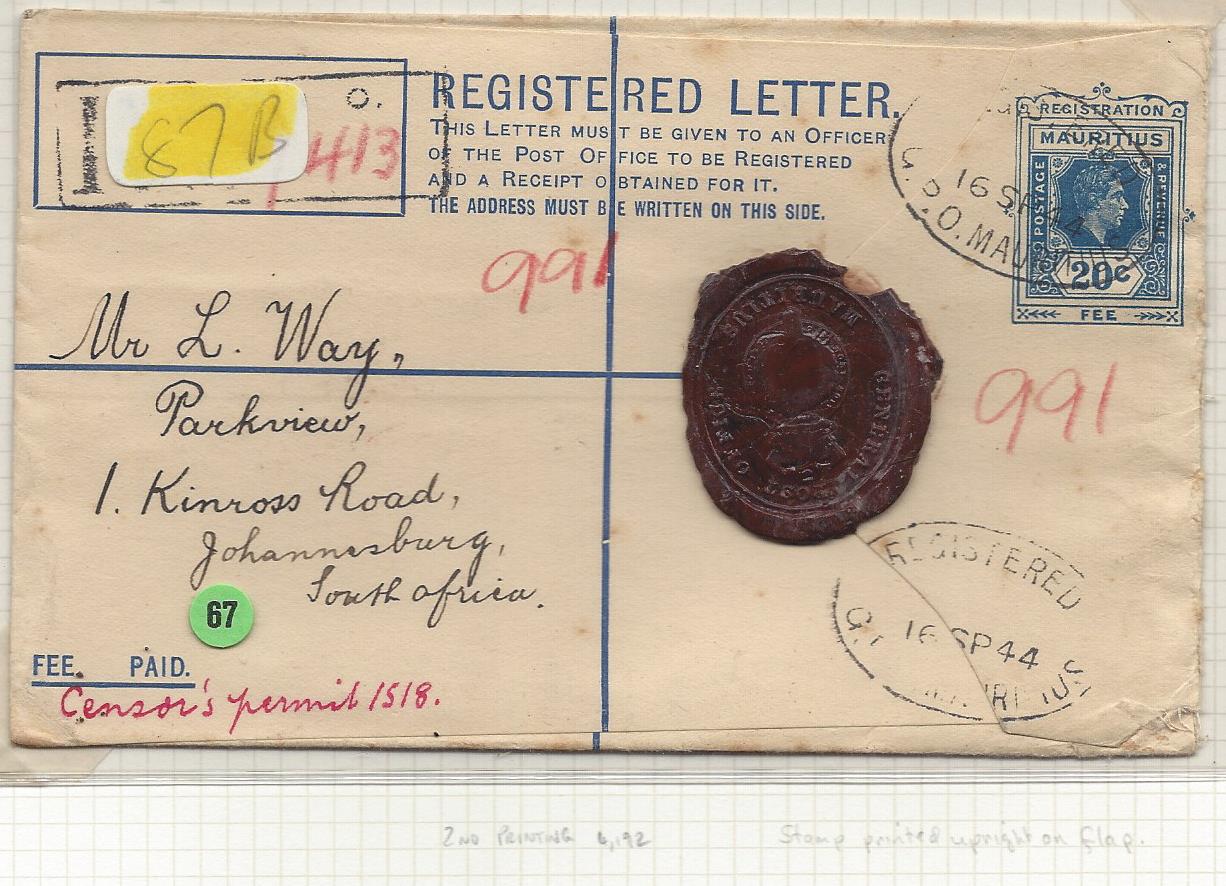 87 B
O.
413
REGISTERED LETTER.
THIS LETTER MUST BE GIVEN TO AN OFFICER
OF THE POST OFFICE TO BE REGISTERED
AND A RECEIPT OBTAINED FOR IT.
THE ADDRESS MUST BE WRITTEN ON THIS SIDE.
REGISTRATION
MAURITIUS
POSTAGE
& REVENUE
20c
FEE
16 SP 44
G.P.O. MAURITIUS
991
Mr L. Way,
Parkview,
1. Kinross Road,
Johannesburg,
South Africa.
MAURITIUS
GENERAL POST
991
REGISTERED
16 SP 44
67
FEE PAID.
Censor's permit 1518.
2ND PRINTING 6,192
Stamp printed upright on flap.